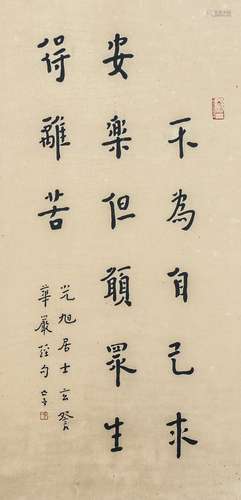 不為自己求
安樂但願眾生
得離苦
光旭居士玄詧
華嚴經句